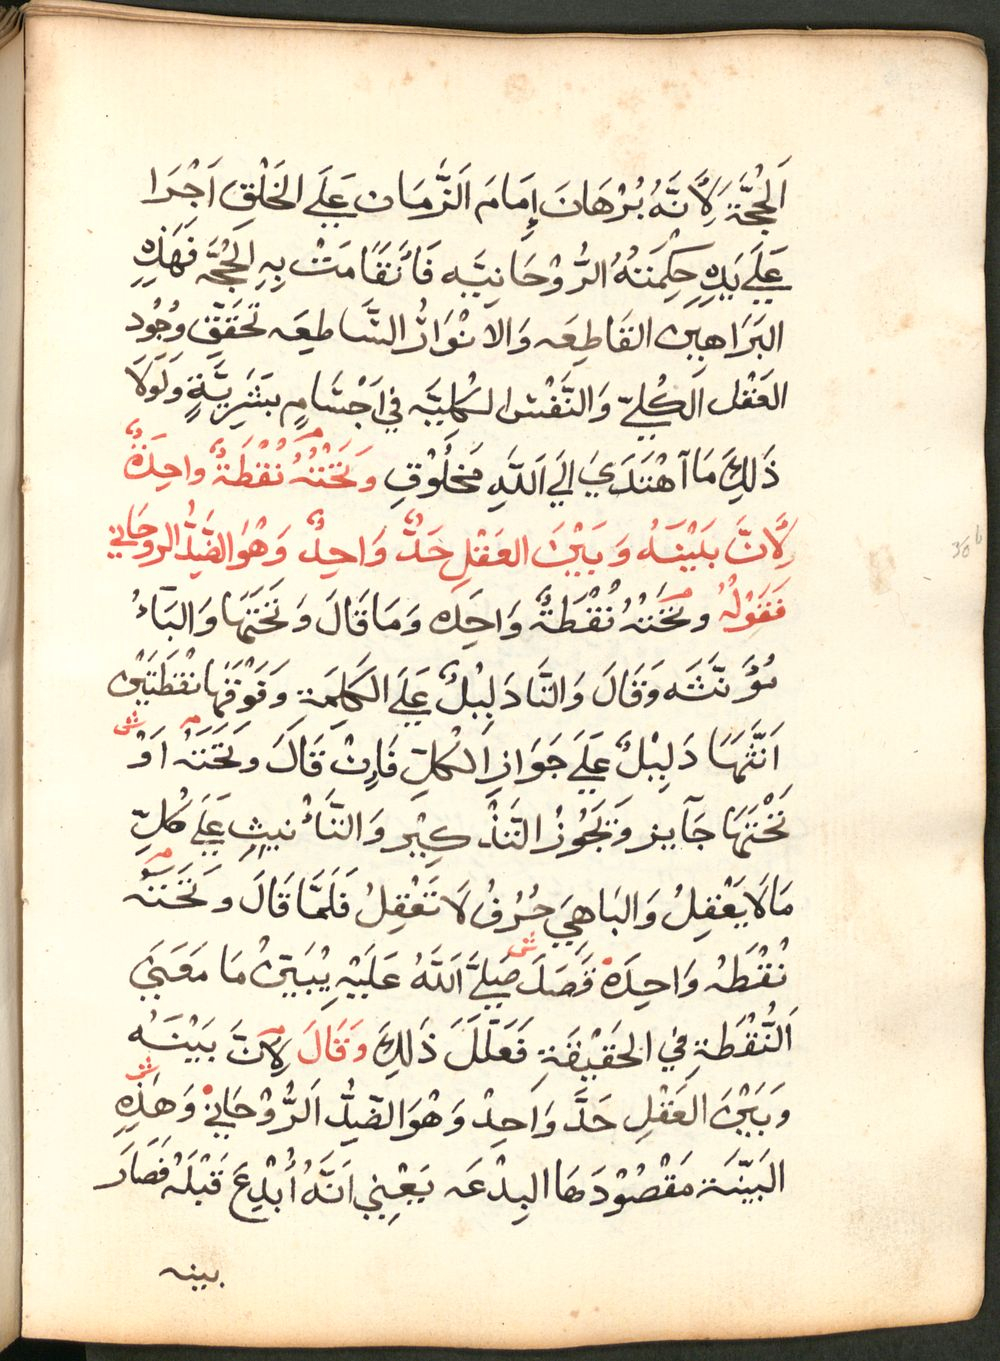 اَلحُجَّة لِاَنَّهُ بُرْهَانَ إِمَامَ اَلزَّمَان عَلَي الخَلْقِ اَجْرَا
عَلَي يَدِهِ حِكِمَتهُ الرُّوْحَانِيَّه فَأنْقَامَتْ بِهِ الحُجَّه فَهَذِهِ
البَرَاهِين القَاطِعَه وَالانْوَارُ السَّاطِعَه تَحَقَّقَ وجُود
العَقْل الكُلِّي وَالنَّفْسْ الكُلِيَّه فِي اَجْسَامٍ بشَرِيَّةٍ وَلَولَا
ذَلِكَ مَا اَهْتَدَي اِلَي اَللَّهِ مَخلُوْقٍ وَتَحْتَهُ نُقْطَةٌ واحِدَةٌ
لِاَنَّ بَيْنَهُ وَبَيْنَ العَقْلِ حَدٌّ وَاحِدٌ وَهْوَ الضِدُّ الروحَاني
فَقَوْلُهُ وتَحْتَهُ نُقْطَةٌ وَاحِدِه وَمَا قَالَ وَتَحْتَهَا وَالبَآءُ
مُؤَنَّثَه وَقَالَ وَالتَّا دَلِيْلٌ عَلَي الكَلِمَة وَفَوْقَهَا نُقْطَتَيْن
اَنَّهَا دَلِيْلٌ عَلَي جَوَازِ الكُلِّ فَاِنْ قَالَ وتَحَتَهْ اَوْ ش
تَحْتَهَا جَآيز وَيَجُوْزُ التَذْكِيْر وَالتَأْنيثِ عَلَي كُلِّ
مَا لَا يَعْقِلُ وَالبَا هِيَ حُرْفُ لَا تَعْقِلُ فَلَمَّا قَالَ وتَحَتَهْ
نُقْطَهْ وَاحِدَهْ قَصَدَ ش صَلَيَّ اَللَّهُ عَلَيْهِ يُبَيِّنْ مَا مَعَنَي
اَلنُّقْطَةِ فِي الحَقيْقَةِ فَعَلَّلَ ذَلِكَ وَقَالَ لِاَنَّ بَيْنَهُ
وبَيْنَ العَقْلِ حَدٌّ وَاَحِدْ وَهْوَ الضِدُّ اَلرُّوْحَانيْ ش وَهَذِهِ
البَيِّنَة مَقْصُوْدهَا البِدْعَه يَعْنِي اَنَّهُ اُبْدِعَ قَبْلَهُ فَصَارَ
بينه
30b